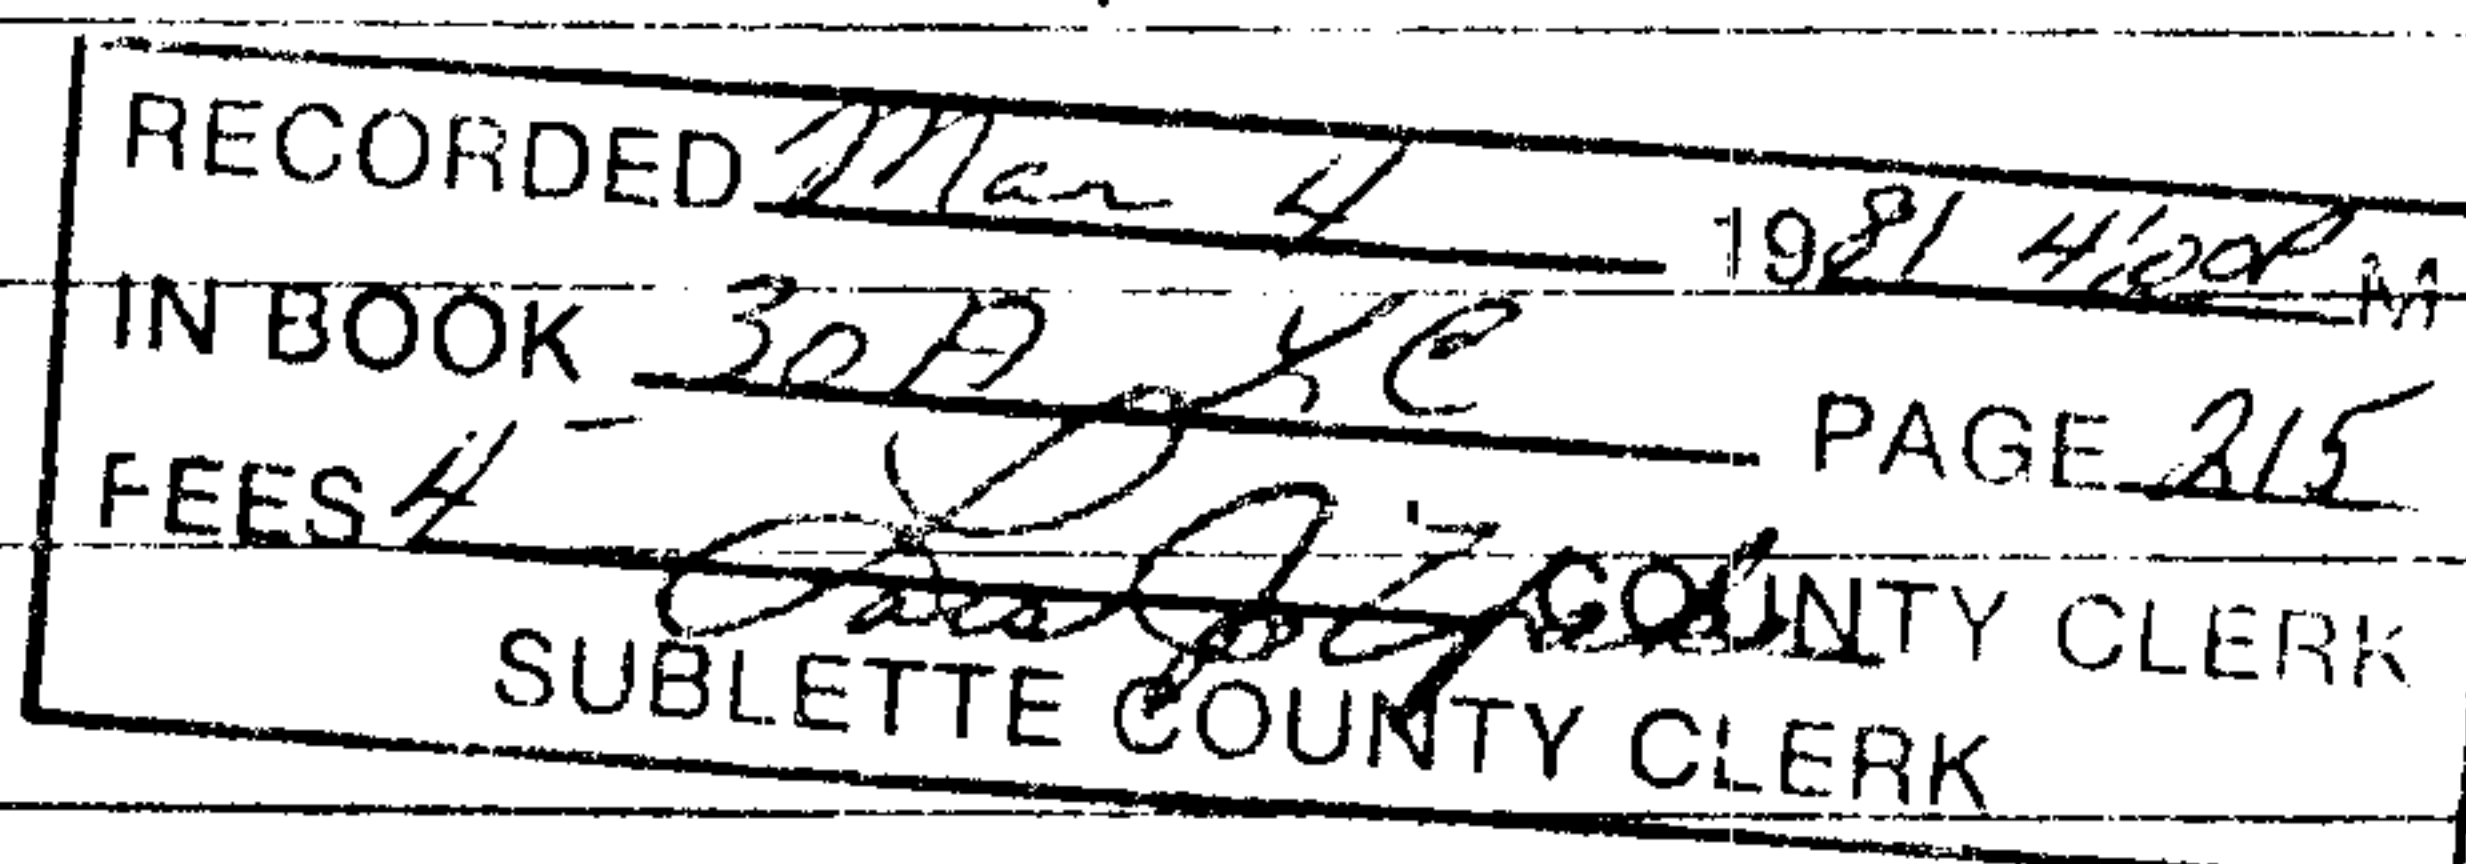 RECORDED Mar 4 1981 4:00P M
IN BOOK 30 A K C PAGE 215
FEES 4 –
COUNTY CLERK
SUBLETTE COUNTY CLERK